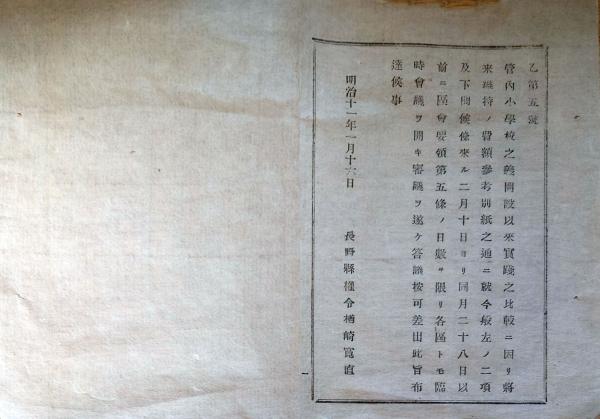 乙第五號
管內小學校之義開設以來實踐之比較ニ因リ將
來維持ノ費額參考別紙之通ニ就今般左ノ二項
及下問候條來ル二月十日ヨリ同月二十八日以
前ニ區會要領第五條ノ日數ヲ限リ各區トモ臨
時會議ヲ開キ審議ヲ遂ケ答議按可差出此旨布
達候事
明治十一年一月十六日
長野縣權令楢崎寬直